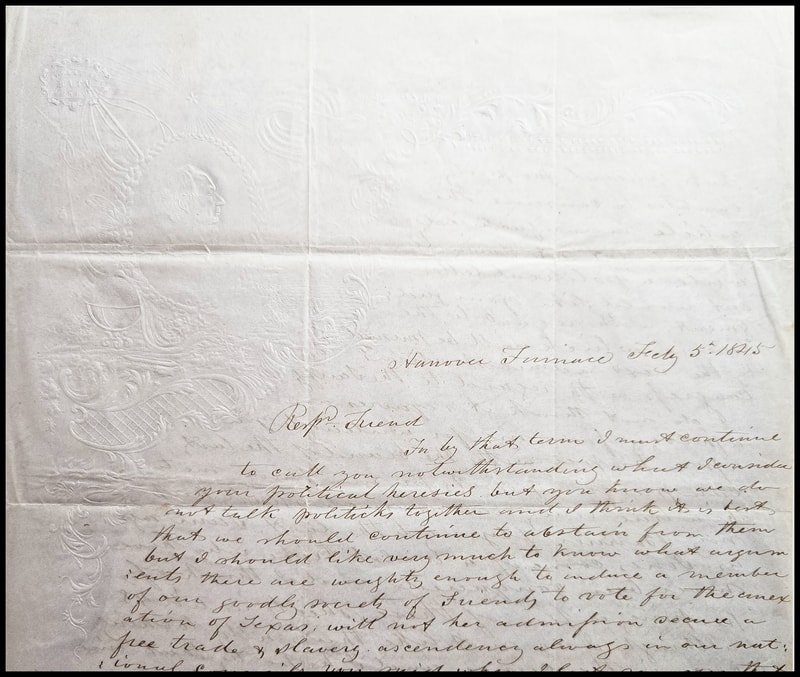 Hanover Furnace Feby 5th 1845
Respd. Friend
In by that term I must continue
to call you notwithstanding what I consider
your political heresies. but you know we do
not talk politicks together and I think it is best
that we should continue to abstain from them
but I should like very much to know what argum
ients there are weighty enough to induce a member
of our goodly society of Friends to vote for the anex
ation of Texas. will not her admission secure a
free trade & slavery ascendency always in our nat:
ional